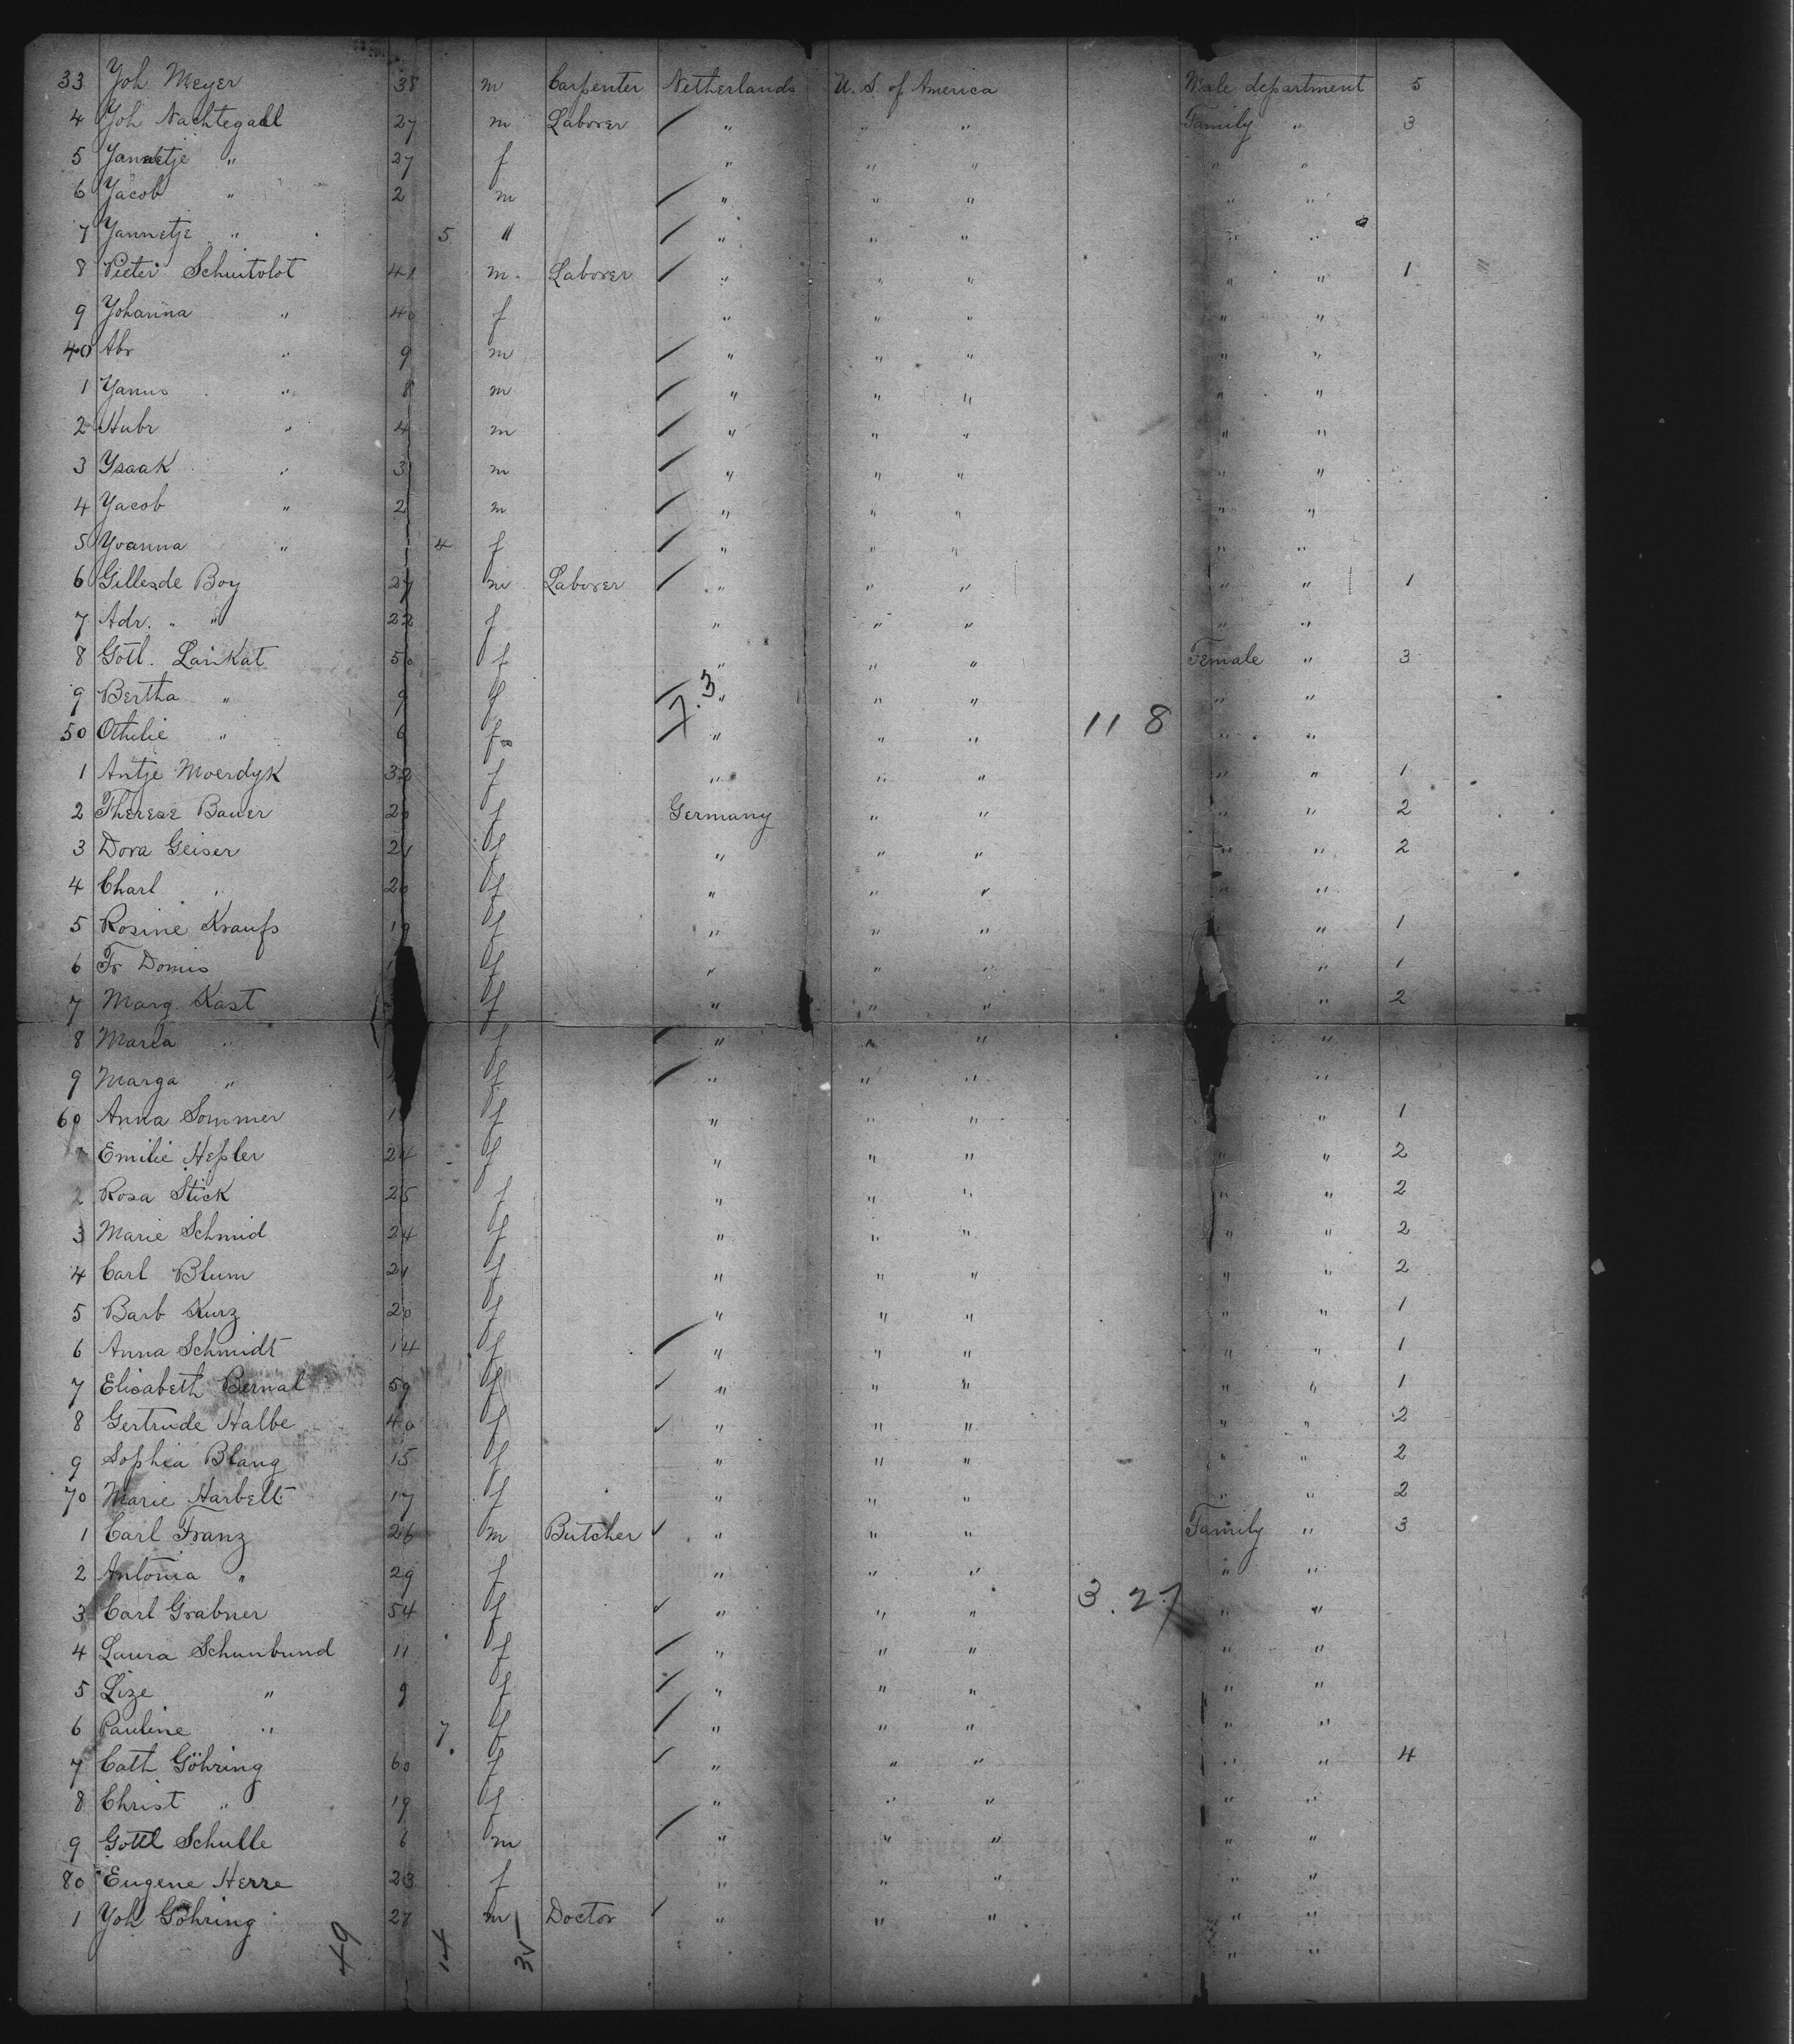 33 Yoh Meyer 38 m Carpenter Netherlands U. S. of America Male department 5
4 Yoh Nachtegaal 27 m Laborer " " " Family " 3
5 Jannetje " 27 f " " " " "
6 Yacob " 2 m " " " " "
7 Yannetje " 5 " " " " " "
8 Pieter Schuitvlot 41 m Laborer " " " " " 1
9 Yohanna " 40 f " " " " "
40 Abr " 9 m " " " " "
1 Yanus " 8 m " " " " "
2 Hubr " 4 m " " " " "
3 Ysaak " 3 m " " " " "
4 Yacob " 2 m " " " " "
5 Yoanna " 4 f " " " " "
6 Gilles de Boy 27 m Laborer " " " " " 1
7 Adr. " " 22 f " " " " "
8 Gotl. Lankat 50 f " " " Female " 3
9 Bertha " 9 f " " " " "
7.3
50 Othilie " 6 f " " " 11 8 " "
1 Antje Moerdyk 32 f " " " " " 1
2 Therese Bauer 20 f Germany " " " " 2
3 Dora Geiser 21 f " " " " " 2
4 Charl " 20 f " " " " "
5 Rosine Kraufs 19 f " " " " " 1
6 Fr Domis f " " " " 1
7 Marg Kast f " " " " 2
8 Maria " f " " " "
9 Marga " f " " " "
60 Anna Sommer f " " " " 1
Emilie Hefsler 24 f " " " " " 2
2 Rosa Stick 25 f " " " " " 2
3 Marie Schmid 24 f " " " " " 2
4 Carl Blum 21 f " " " " " 2
5 Barb Kurz 20 f " " " " " 1
6 Anna Schmidt 14 f " " " " " 1
7 Elisabeth Bernal 59 f " " " " " 1
8 Gertrude Halbe 40 f " " " " " 2
9 Sophia Blang 15 f " " " " " 2
70 Marie Harbelt 17 f " " " " " 2
1 Carl Franz 26 m Butcher " " " Family " 3
2 Antonia " 29 f " " " " "
3 Carl Grabner 54 f " " " 3.27 " "
4 Laura Schunbund 11 f " " " " "
5 Lize " 9 f " " " " "
6 Pauline " 7 f " " " " "
7 Cath Göhring 60 f " " " " " 4
8 Christ " 19 f " " " " "
9 Gottl Schulle 6 m " " " " "
80 Eugene Herre 23 f " " " " "
1 Yoh Göhring 27 m Doctor " " " " "
49 14 35 " "